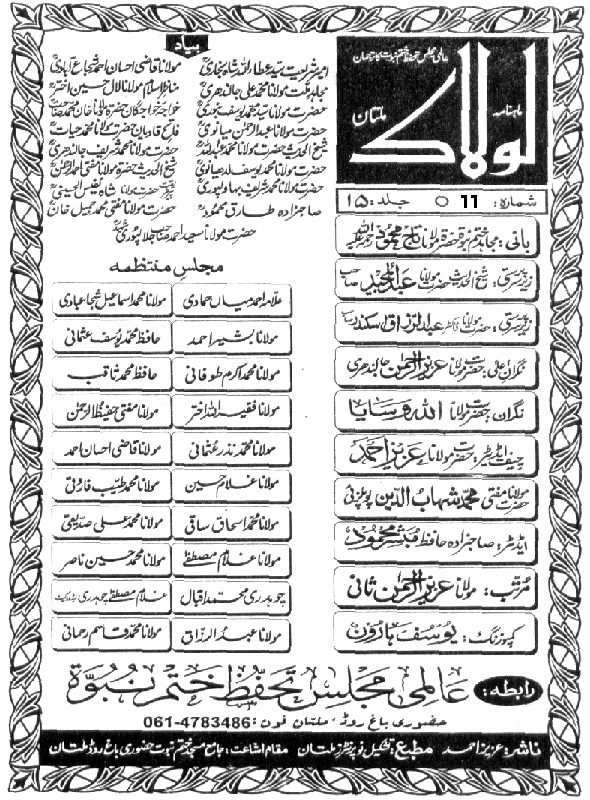 عالمی مجلس تحفظ ختم نبوت کا ترجمان
ماہنامہ
لولاک
ملتان
شمارہ: 11 ○ جلد: ۱۵
بانی: مجاہد ختم نبوۃ حضرۃ مولانا تاج محمود رحمۃ اللہ علیہ
زیر سرپرستی: شیخ الحدیث حضرت مولانا عبدالمجید صاحب
زیر سرپرستی: حضرت مولانا ڈاکٹر عبدالرزاق سکندر صاحب
نگران اعلیٰ: حضرت مولانا عزیز الرحمن جالندھری
نگران: حضرت مولانا اللہ وسایا
چیف ایڈیٹر: حضرت مولانا عزیز احمد
حضرت مولانا مفتی محمد شہاب الدین پوپلزئی
ایڈیٹر: صاحبزادہ حافظ مبشر محمود
مرتب: مولانا عزیز الرحمن ثانی
کمپوزنگ: یوسف ہارون
بیاد
امیر شریعت سید عطاء اللہ شاہ بخاریؒ
مولانا قاضی احسان احمد شجاع آبادیؒ
مجاہد ملت مولانا محمد علی جالندھریؒ
مناظر اسلام مولانا لال حسین اخترؒ
حضرت مولانا سید محمد یوسف بنوریؒ
خواجہ خواجگان حضرۃ مولانا خان محمد صاحبؒ
حضرت مولانا عبدالرحمن میانویؒ
فاتح قادیان حضرت مولانا محمد حیاتؒ
شیخ الحدیث حضرت مولانا محمد عبداللہؒ
حضرت مولانا محمد شریف جالندھریؒ
حضرت مولانا محمد یوسف لدھیانویؒ
شیخ الحدیث حضرۃ مولانا مفتی احمد الرحمنؒ
حضرت مولانا محمد شریف بہاولپوریؒ
حضرت مولانا شاہ نفیس الحسینیؒ
صاحبزادہ طارق محمودؒ
حضرت مولانا مفتی محمد جمیل خانؒ
حضرت مولانا سعید احمد صاحب جلالپوریؒ
مجلس منتظمہ
علامہ احمد میاں حمادی
مولانا محمد اسماعیل شجاعبادی
مولانا بشیر احمد
حافظ محمد یوسف عثمانی
مولانا محمد اکرم طوفانی
حافظ محمد ثاقب
مولانا فقیر اللہ اختر
مولانا مفتی حفیظ الرحمن
مولانا محمد نذر عثمانی
مولانا قاضی احسان احمد
مولانا غلام حسین
مولانا محمد طیب فاروقی
مولانا محمد اسحاق ساقی
مولانا محمد علی صدیقی
مولانا غلام مصطفیٰ
مولانا محمد حسین ناصر
چوہدری محمد اقبال
غلام مصطفیٰ چوہدری ایڈووکیٹ
مولانا عبدالرزاق
مولانا محمد قاسم رحمانی
رابطہ: عالمی مجلس تحفظ ختم نبوۃ
حضوری باغ روڈ، ملتان فون: 061-4783486
ناشر: عزیز احمد مطبع: تشکیل نو پرنٹرز ملتان مقام اشاعت: جامع مسجد ختم نبوت حضوری باغ روڈ ملتان